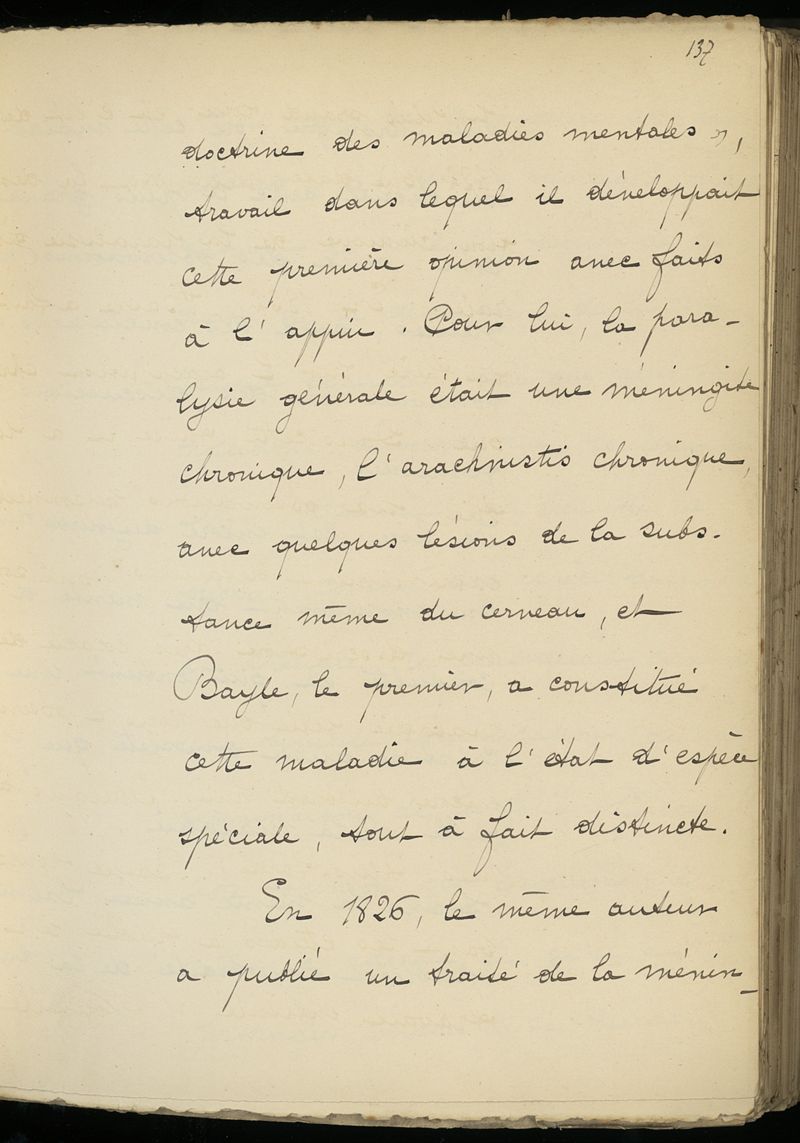 137
doctrine des maladies mentales »,
travail dans lequel il développait
cette première opinion avec faits
à l'appui. Pour lui, la para-
lysie générale était une méningite
chronique, l'arachnistis chronique,
avec quelques lésions de la subs-
tance même du cerveau, et
Bayle, le premier, a constitué
cette maladie à l'état d'espèce
spéciale, tout à fait distincte.
En 1826, le même auteur
a publié un traité de la ménin-